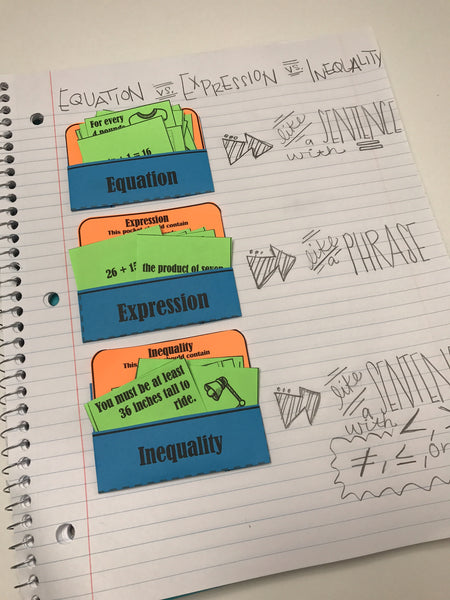 EQUATION vs. EXPRESSION vs. INEQUALITY
For every
4 pounds
+ 1 = 16
Equation
like
a SENTENCE
with =
Expression
This pocket should contain
26 + 15
the product of seven
Expression
like
a PHRASE
Inequality
This should contain
You must be at least
36 inches tall to
ride.
Inequality
like SENTEN
a
with <,
≠, ≤, or